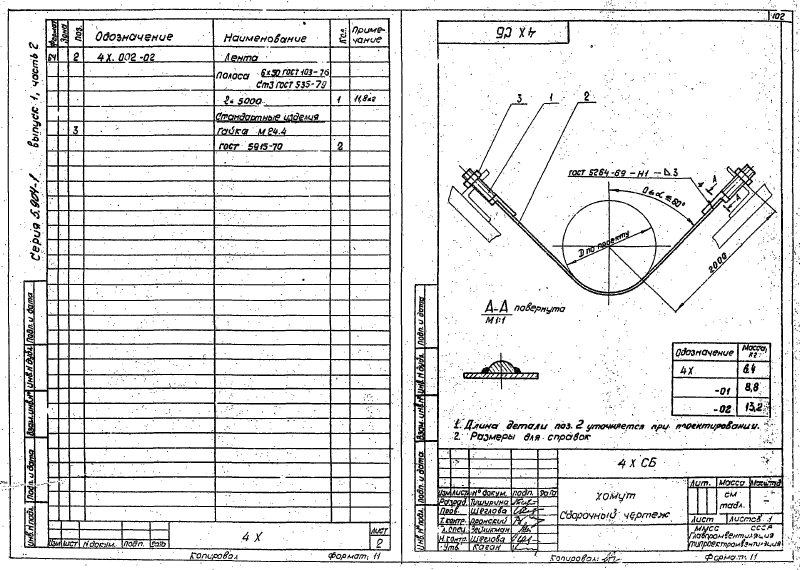 Серия 5.904-1 выпуск 1, часть 2
Формат Зона Поз. Обозначение Наименование Кол. Приме-чание
БЧ 2 4Х. 002-02 Лента
Полоса 6х50 ГОСТ 103-76
Ст3 ГОСТ 535-79
ℓ= 5000 1 11,8кг
Стандартные изделия
3 Гайка М24.4
ГОСТ 5915-70 2
Инв.№подл. Подп. и дата Взам.инв.№ Инв.№дубл. Подп. и дата
Изм Лист №докум. подп. дата
4 Х
Лист
2
Копировал Формат 11
102
4Х СБ
3 1 2
ГОСТ 5264-69-Н1-
А
А
D по проекту
2000
А-А повернута
М1:1
Обозначение Масса, кг
4Х 6,4
-01 8,8
-02 13,2
1. Длина детали поз. 2 уточняется при проектировании.
2. Размеры для справок
Инв.№подл. Подп. и дата Взам.инв.№ Инв.№дубл. Подп. и дата
4 Х СБ
Изм Лист №докум. подп. дата
Разраб. Тишурина
Пров. Щеглова
Т.контр. Пронский
Н.контр. Щеглова
Утв. Каган
Хомут
Сборочный чертеж
Лит. Масса Масштаб
см
табл.
-
Лист Листов 1
ММСС СССР
Главпромвентиляция
Гипроектпромвентиляция
Копировал: Формат 11